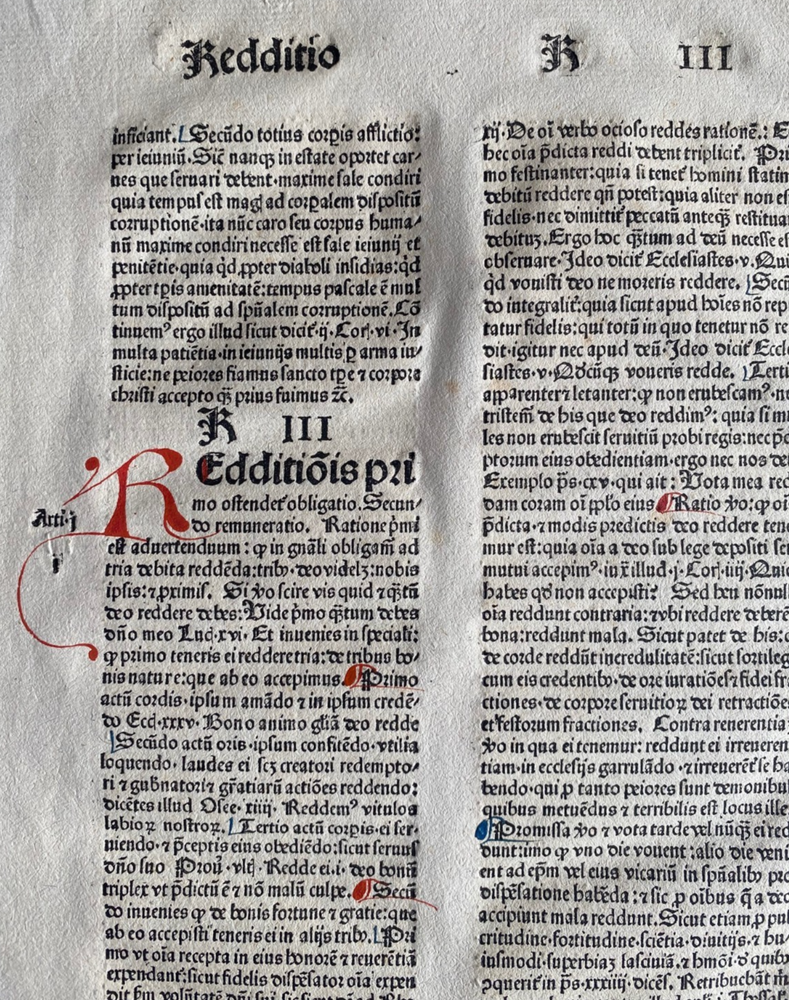 Redditio
R III
inficiant. Secūdo totius corꝑis afflictio:
per ieiuniū·Sic̄ nanqꝫ in estate oportet car⸗
nes que seruari debent·maxime sale condiri
quia tempus est magꝭ ad corꝑalem dispositū
corruptionē·ita nūc caro seu corpus huma⸗
nū maxime condiri necesse est sale ieiunij et
penitētie·quia qd̄ ꝓpter diaboli insidias:qd̄
ꝓpter tꝑis amenitatē:tempus pascale ē mul
tum dispositū ad spūalem corruptionē.Cō
tinuemꝰ ergo illud sicut dicit̄·ij·Corj·vi·In
multa patiētia·in ieiunijs multis ꝑ arma iu⸗
sticie:ne peiores fiamus sancto tꝑe ⁊ corpore
christi accepto qꝫ̄ prius fuimus ⁊c̄.
R III
REdditiōis pri
mo ostendet̄ obligatio.Secun⸗
do remuneratio. Ratione pͥmi
Arti·j
est aduertenduum: ꝙ in gn̄ali obligam̄ ad
tria debita reddēda:tribꝰ·deo videlꝫ:nobis
ipsis:⁊ ꝓximis. Si ꝟo scire vis quid ⁊ qꝫ̄tū
deo reddere debes:Vide pͥmo qꝫ̄tum debes
dn̄o meo Luc̄·xvi· Et inuenies in speciali:
ꝙ primo teneris ei reddere tria:de tribus bo⸗
nis nature:que ab eo accepimus. Primo
actū cordis·ipsum amādo ⁊ in ipsum credē⸗
do Eccl̄·xxxv·Bono animo glīā deo redde
Secūdo actū oris·ipsum confitēdo·vtilia
loquendo·laudes ei scꝫ creatori redempto⸗
ri ⁊ gub̄natori⁊ gr̄atiarū actiōes reddendo:
dicētes illud Osee·xiiij·Reddemꝰ vitulos
labioꝝ nostroꝝ. Tertio actū corꝑis·ei ser⸗
uiendo·⁊ p̄ceptis eius obediēdo:sicut seruus
dn̄o suo Prou̇·vltj·Redde ei·i·deo bonū
triplex vt p̄dictū ē ⁊ nō malū culpe. Secū
do inuenies ꝙ de bonis fortune ⁊ gratie:que
ab eo accepisti teneris ei in alijs tribꝰ. Pri
mo vt oīa recepta in eius honorē ⁊ reuerētiā
expendant̄:sicut fidelis dispēsator oīa expen
xij·De oī verbo ocioso reddēs rationē.:
hec oīa p̄dicta reddi debent triplicit̄. Pri
mo festinanter:quia si tenet̄ homini statim
debitū reddere qn̄ potest:quia aliter non es
fidelis·nec dimittit̄ peccatū anteqꝫ̄ restitua
debituꝫ.Ergo hoc qꝫ̄tum ad deū necesse es
obseruare·Ideo dicit̄ Ecclesiastes·v·Qui
qd̄ vouisti deo ne moreris reddere. Secū
do integralit̄:quia sicut apud hoīes nō rep
tatur fidelis:qui totū in quo tenetur nō re
dit·igitur nec apud deū·Ideo dicit̄ Eccle
siastes·v·Qd̄cūqꝫ voueris redde. Terti
apparenter⁊ letanter:ꝙ non erubescamꝰ·ne
tristem̄ de his que deo reddimꝰ: quia si mi
les non erubescit seruitiū probi regis:nec pē
ptorum eius obedientiam·ergo nec nos de
Exemplo p̄s·cxv·qui ait: Vota mea red
dam coram oī pplo eius Ratio ꝟo:ꝙ oī
p̄dicta·⁊ modis predictis deo reddere tene
mur est:quia oīa a deo sub lege depositi seu
mutui accepimꝰ·iux̄ illud·j·Corj·iiij·Quid
habes qd̄ non accepisti? Sed heu nōnul
oīa reddunt contraria:⁊vbi reddere deberē
bona:reddunt mala. Sicut patet de his:
de corde reddūt incredulitatē:sicut sortileg
cum eis credentibꝰ·de ore iuratiōes⁊ fidei fra
ctiones·de corpore seruitioꝝ dei retractiōes
et festorum fractiones. Contra reuerentia
ꝟo in qua ei tenemur: reddunt ei irreueren
tiam·in ecclesijs garrulādo·⁊ irreuerēt̄ se ha
bendo·qui ꝑ tanto peiores sunt demonibus
quibus metuēdus ⁊ terribilis est locus ille
Promissa ꝟo ⁊ vota tarde vel nūqꝫ̄ ei red
dunt:imo ꝙ vno die vouent:alio die veni
ent ad ep̄m vel eius vicariū in spūalibꝰ pro
dispēsatione habēda:⁊ sic ꝓ oībus q̄ a deo
accipiunt mala reddunt.Sicut etiam ꝓ pul
critudine·fortitudine·sciētia·diuitijs·⁊ hu⸗
iusmodi·superbiaꝫ lasciuiā·⁊ hmōi·